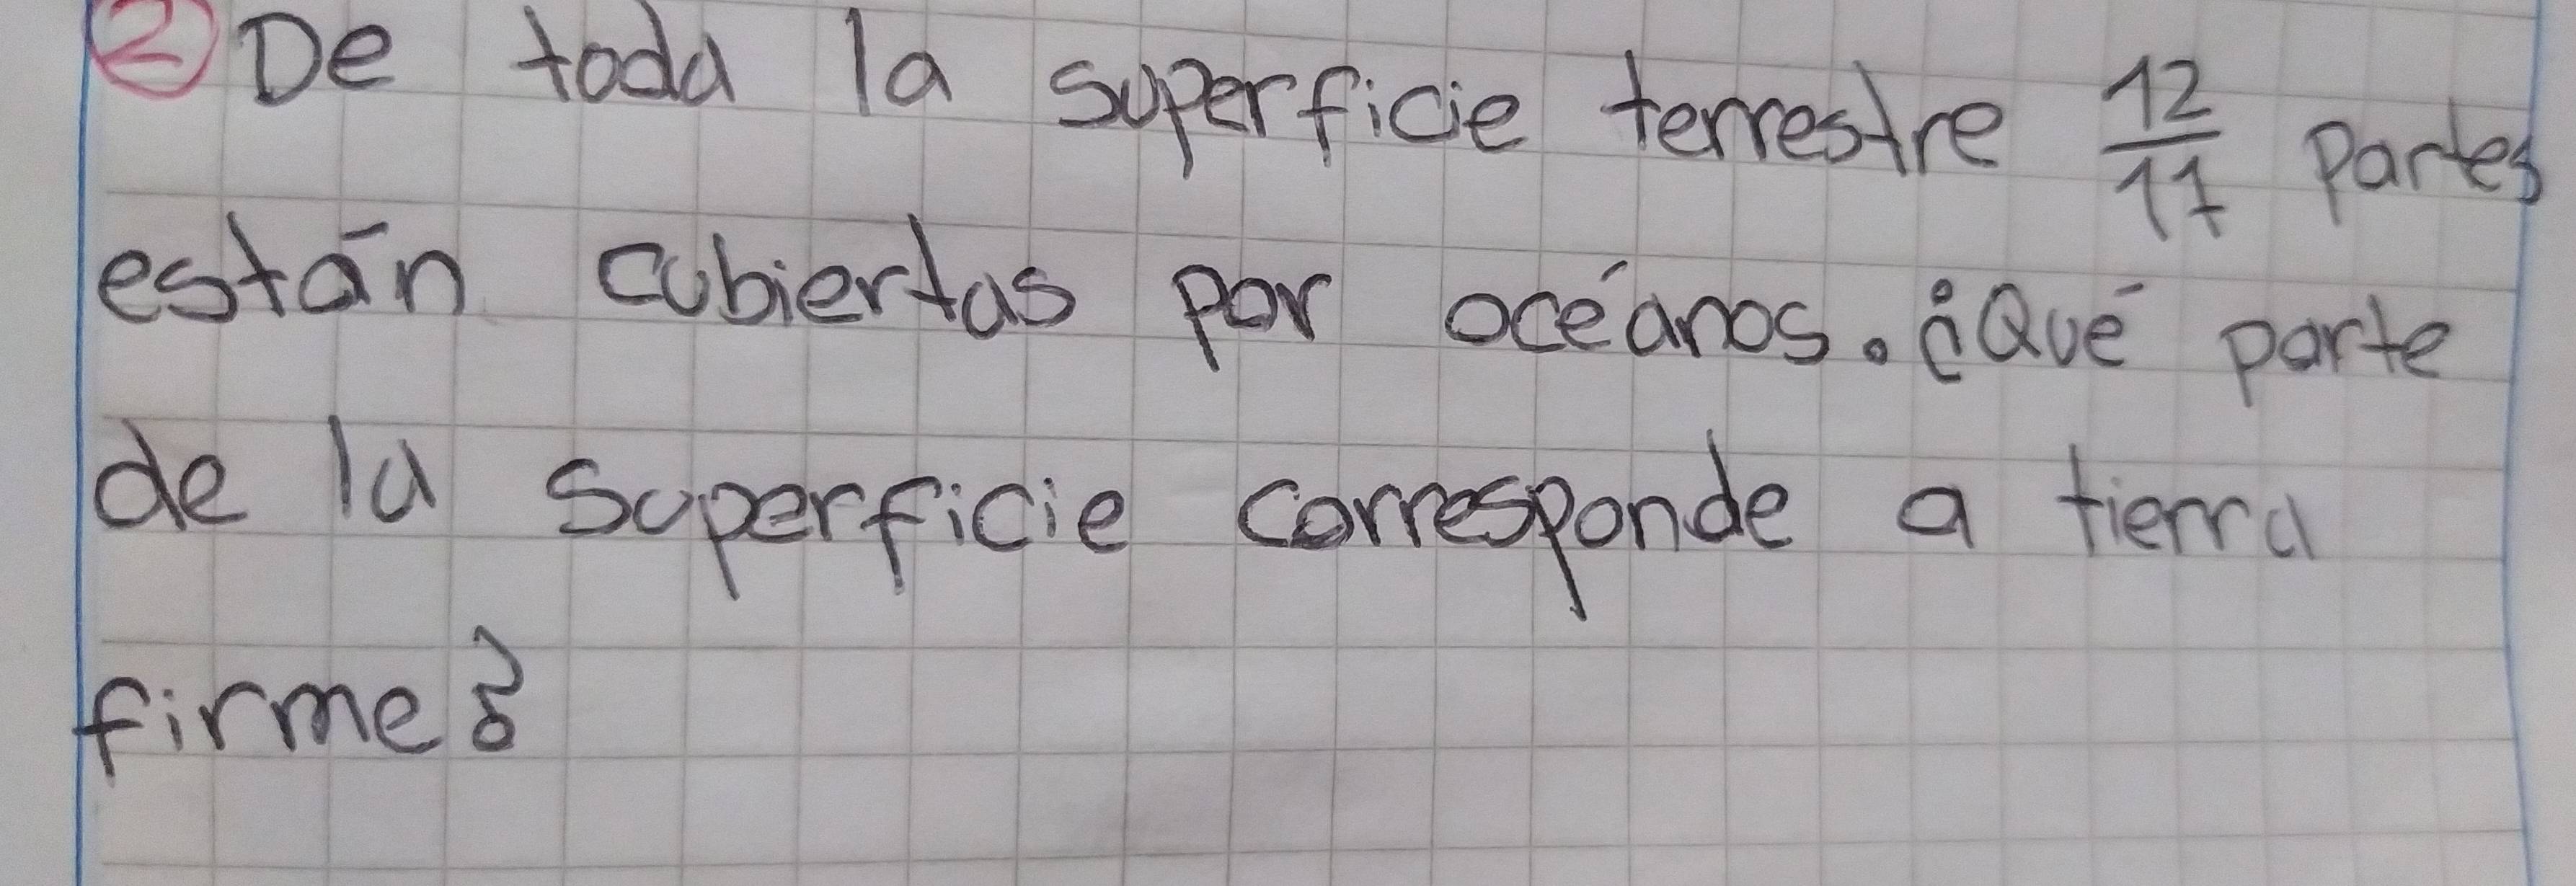 ② De toda la superficie terrestre 12/17 partes
están cubiertas por océanos. ¿Qué parte
de la superficie corresponde a tierra
firme?